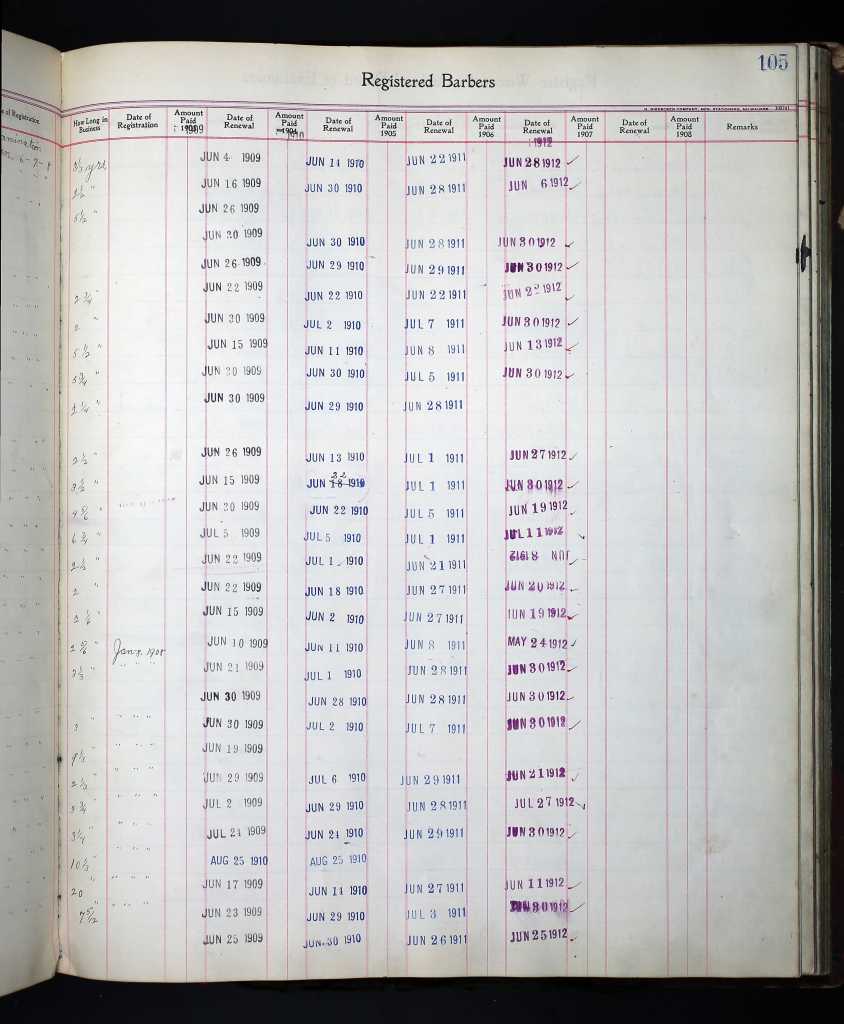 105
Registered Barbers
s of Registration
How Long in Business
Date of Registration
Amount Paid 1909
Date of Renewal
Amount Paid 1910
Date of Renewal
Amount Paid 1905
Date of Renewal
Amount Paid 1906
Date of Renewal 1912
Amount Paid 1907
Date of Renewal
Amount Paid 1908
Remarks
yrs JUN 4 1909 JUN 14 1910 JUN 22 1911 JUN 28 1912 ✓
" JUN 16 1909 JUN 30 1910 JUN 28 1911 JUN 6 1912 ✓
5 ½ " JUN 26 1909
JUN 30 1909 JUN 30 1910 JUN 28 1911 JUN 30 1912 ✓
JUN 26 1909 JUN 29 1910 JUN 29 1911 JUN 30 1912 ✓
2 ¾ " JUN 22 1909 JUN 22 1910 JUN 22 1911 JUN 22 1912 ✓
2 " JUN 30 1909 JUL 2 1910 JUL 7 1911 JUN 30 1912 ✓
5 ½ " JUN 15 1909 JUN 11 1910 JUN 8 1911 JUN 13 1912 ✓
5 ¾ " JUN 30 1909 JUN 30 1910 JUL 5 1911 JUN 30 1912 ✓
1 ¼ " JUN 30 1909 JUN 29 1910 JUN 28 1911
2 ½ " JUN 26 1909 JUN 13 1910 JUL 1 1911 JUN 27 1912 ✓
22
3 ½ " JUN 15 1909 JUN 18 1910 JUL 1 1911 JUN 30 1912 ✓
4 " JUN 30 1909 JUN 22 1910 JUL 5 1911 JUN 19 1912 ✓
6 ¾ " JUL 5 1909 JUL 5 1910 JUL 1 1911 JUL 11 1912
" JUN 22 1909 JUL 1 1910 JUN 21 1911 JUN 8 1912
2 " JUN 22 1909 JUN 18 1910 JUN 27 1911 JUN 20 1912 ✓
" JUN 15 1909 JUN 2 1910 JUN 27 1911 JUN 19 1912 ✓
2 " Jan 7. 1908 JUN 10 1909 JUN 11 1910 JUN 8 1911 MAY 24 1912 ✓
2 ⅓ " " " " JUN 21 1909 JUL 1 1910 JUN 28 1911 JUN 30 1912 ✓
JUN 30 1909 JUN 28 1910 JUN 28 1911 JUN 30 1912 ✓
" " " " JUN 30 1909 JUL 2 1910 JUL 7 1911 JUN 30 1912 ✓
" " " JUN 19 1909
2 ½ " " " " JUN 29 1909 JUL 6 1910 JUN 29 1911 JUN 21 1912 ✓
" " " " JUL 2 1909 JUN 29 1910 JUN 28 1911 JUL 27 1912 ✓
3 ¼ " " " " JUL 24 1909 JUN 24 1910 JUN 29 1911 JUN 30 1912 ✓
10 " " " " AUG 25 1910 AUG 25 1910
20 " " " " JUN 17 1909 JUN 11 1910 JUN 27 1911 JUN 11 1912 ✓
" " " JUN 23 1909 JUN 29 1910 JUL 3 1911 JUN 30 1912 ✓
JUN 25 1909 JUN 30 1910 JUN 26 1911 JUN 25 1912 ✓